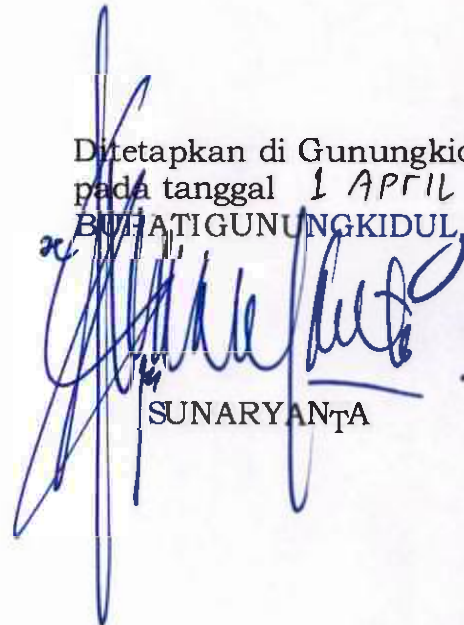 Ditetapkan di Gunungkid
pada tanggal 1 APRIL
BUPATI GUNUNGKIDUL
SUNARYANTA